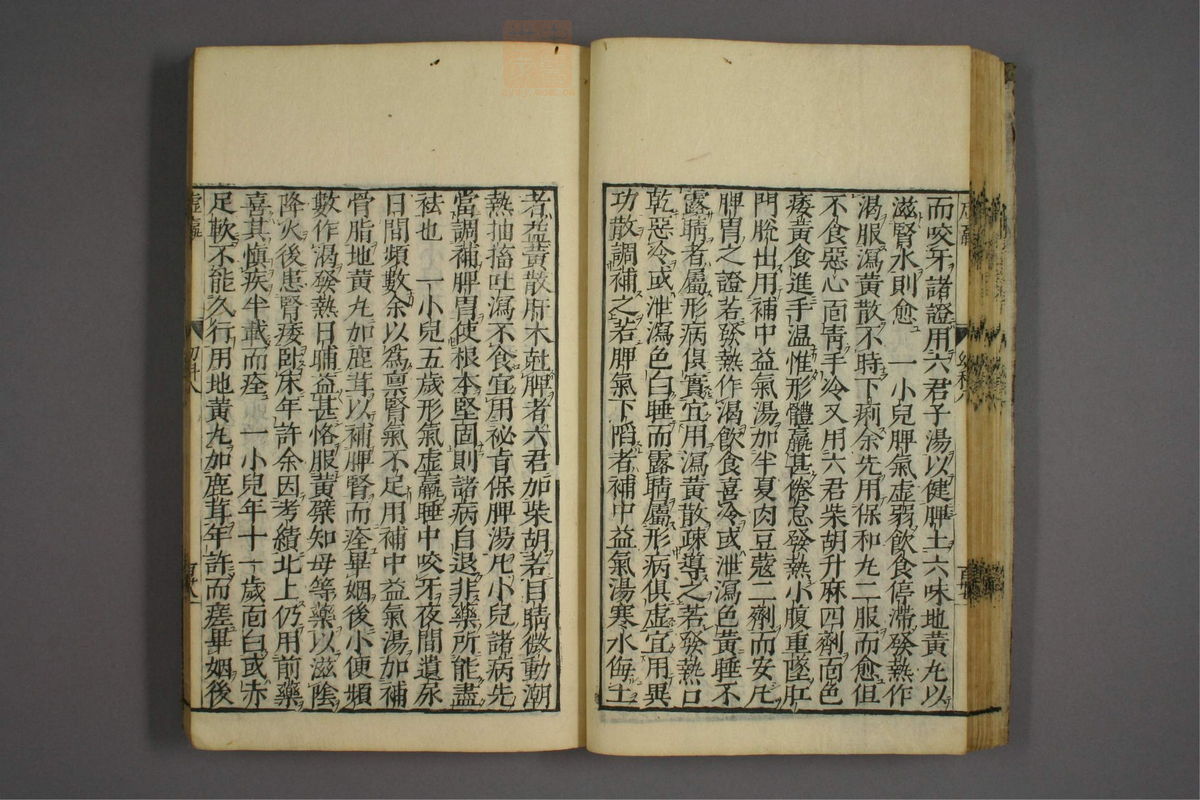 而咬牙諸證用六君子湯以健脾土六味地黃丸以
滋腎水則愈　一小兒脾氣虛弱飲食停滯發熱作
渴服瀉黃散不時下痢余先用保和丸二服而愈但
不食惡心面青手冷又用六君柴胡升麻四劑面色
痿黃食進手溫惟形體羸甚倦怠發熱小腹重墜肛
門脫出用補中益氣湯加半夏肉豆蔻二劑而安凡
脾胃之證若發熱作渴飲食喜冷或泄瀉色黃睡不
露睛者屬形病俱實宜用瀉黃散疎導之若發熱口
乾惡冷或泄瀉色白睡而露睛屬形病俱虛宜用異
功散調補之若脾氣下陷者補中益氣湯寒水侮土
者益黃散肝木尅脾者六君加柴胡若目睛微動潮
熱抽搐吐瀉不食宜用祕旨保脾湯凡小兒諸病先
當調補脾胃使根本堅固則諸病自退非藥所能盡
祛也　一小兒五歲形氣虛羸睡中咬牙夜間遺尿
日間頻數余以爲禀腎氣不足用補中益氣湯加補
骨脂地黃丸加鹿茸以補脾腎而痊畢姻後小便頻
數作渴發熱日晡益甚恪服黃檗知母等藥以滋陰
降火後患腎痿臥床年許余因考績北上仍用前藥
喜其愼疾半載而痊　一小兒年十一歲面白或赤
足軟不能久行用地黃丸加鹿茸年許而瘥畢姻後
虛羸